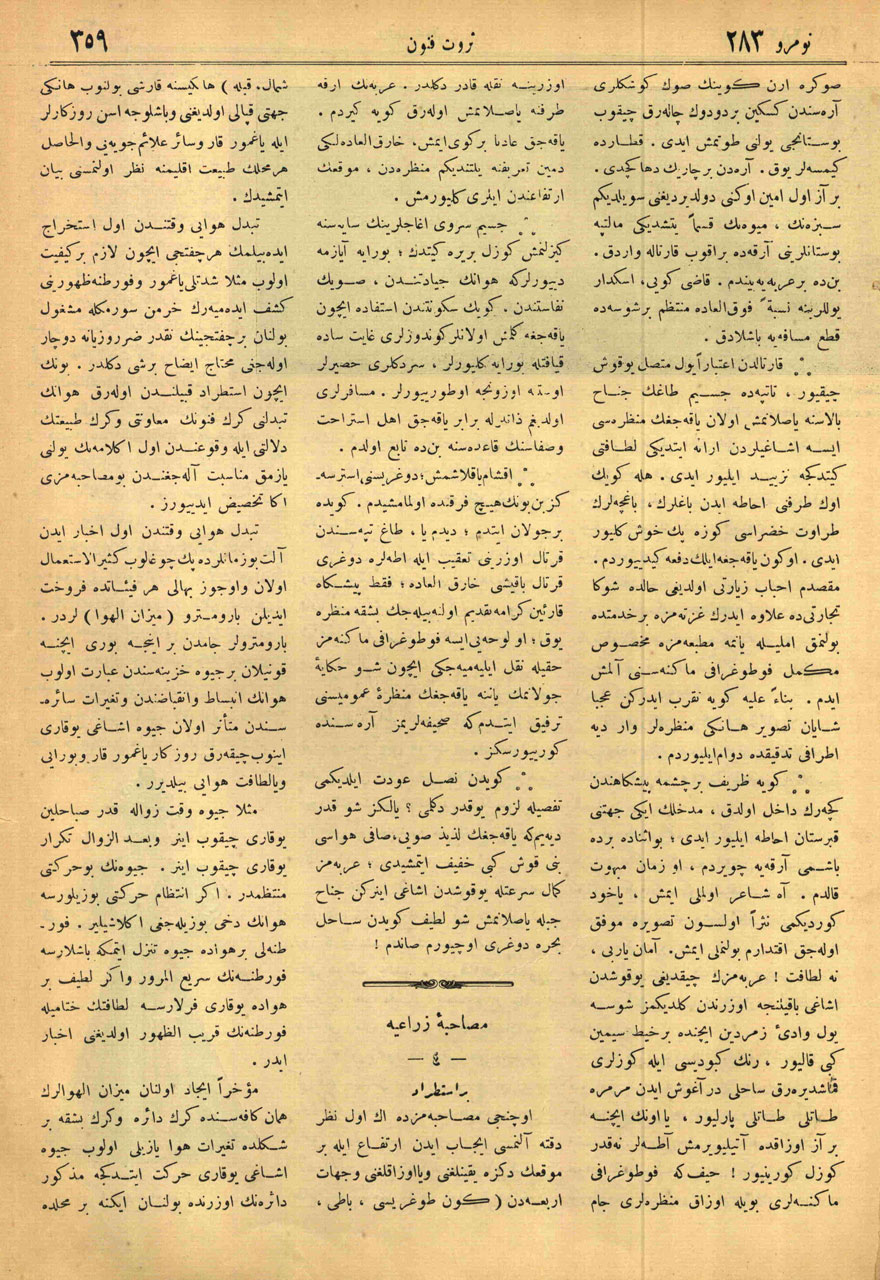 نومرو ٢٨٣
ثروت فنون
٣٥٩
صوكره ارن كوينك صوك كوشكلرى
آره‌سندن كسكين بر دودوك چاله‌رق چيقوب
بوستانجى يولنى طوتمش ايدى . قطارده
كيمسه‌لر يوق . آره‌دن بر چاريك دها كچدى .
بر آز اول امين اوكنى دولديرديغنى سويلديكم
سبزه‌نك ، ميوه‌نك قسماً يتشديكى مالتپه
بوستانلرينى آرقه‌ده براقوب قارتاله واردق .
بن‌ده بر عربه‌يه بيندم . قاضى كويى، اسكدار
يوللرينه نسبةً فوق‌العاده منتظم بر شوسه‌ده
قطع مسافه‌يه باشلادق .
⁂ قارتالدن اعتباراً يول متصل يوقوش
چيقيور ، تاتپه‌ده جسيم طاغك جناح
بالاسنه ياصلانمش اولان ياقه‌جغك منظره‌سى
ايسه اشاغيلردن ارائه ايتديكى لطافتى
كيتدكجه تزييد ايليور ايدى . هله كويك
اوك طرفنى احاطه ايدن باغلرك ، باغچه‌لرك
طراوت خضراسى كوزه پك خوش كليور
ايدى . اوكون ياقه‌جغه ايلك دفعه كيدييوردم .
مقصدم احباب زيارتى اولديغى حالده شوكا
تجارتى‌ده علاوه ايدرك غزته‌مزه بر خدمتده
بولنمق امليله يانمه مطبعه‌مزه مخصوص
مكمل فوطوغرافى ماكنه‌سنى آلمش
ايدم . بناءً عليه كويه تقرب ايدركن عجبا
شايان تصوير هانكى منظره‌لر وار ديه
اطرافى تدقيقده دوام ايليوردم .
⁂ كويه ظريف بر چشمه پيشكاهندن
كچه‌رك داخل اولدق ، مدخلك ايكى جهتنى
قبرستان احاطه ايليور ايدى ؛ بو اثناده برده
باشمى آرقه‌يه چويردم ، او زمان مبهوت
قالدم . آه شاعر اولملى ايمش ، ياخود
كورديكمى نثراً اولسون تصويره موفق
اوله‌جق اقتدارم بولنملى ايمش. آمان ياربى ،
نه لطافت ! عربه‌مزك چيقديغى يوقوشدن
اشاغى باقيلنجه اوزرندن كلديكمز شوسه
يول وادىء زمردين ايچنده بر خيط سيمين
كبى قاليور ، رنك كبوديسى ايله كوزلرى
قماشديره‌رق ساحلى در آغوش ايدن مرمره
طاتلى طاتلى پارليور ، يا اونك ايچنه
بر آز اوزاقده آتيليويرمش آطه‌لر نه‌قدر
كوزل كورينيور ! حيف كه فوطوغرافى
ماكنه‌لرى بويله اوزاق منظره‌لرى جام
اوزرينه نقله قادر دكلدر . عربه‌نك ارقه
طرفنه ياصلانمش اوله‌رق كويه كيردم .
ياقه‌جق عادتا بر كوى ايمش، خارق‌العاده‌لكى
دمين تعريفنه يلتنديكم منظره‌دن ، موقعك
ارتفاعندن ايلرى كليورمش .
⁂ جسيم سروى اغاجلرينك سايه‌سنه
كيزلنمش كوزل بر يره كيتدك ؛ بورايه آيازمه
دييورلركه هوانك جيادتندن ، صويك
نفاستندن . كويك سكونتندن استفاده ايچون
ياقه‌جغه كلمش اولانلر كوندوزلرى غايت ساده
قيافتله بورايه كليورلر ، سردكلرى حصيرلر
اوستنه اوزونجه اوطورييورلر . مسافرلرى
اولديغم ذاتلرله برابر ياقه‌جق اهل استراحت
وصفاسنك قاعده‌سنه بن‌ده تابع اولدم .
⁂ اقشام ياقلاشمش؛ دوغريسنى استرسه‌-
كز بن بونك هيچ فرقنده اولمامشيدم . كويده
بر جولان ايتدم ؛ ديدم يا، طاغ تپه‌سندن
قرتال اوزرينى تعقيب ايله اطه‌لره دوغرى
قرتال باقيشى خارق العاده ؛ فقط پيشكاه
قارئين كرامه تقديم اولنه‌بيله‌جك بشقه منظره
يوق ؛ او لوحه‌يى ايسه فوطوغرافى ماكنه‌مز
حقيله نقل ايليه‌ميه‌جكى ايچون شو حكايهٔ
جولانمك ياننه ياقه‌جغك منظرهٔ عموميسنى
ترفيق ايتدم كه صحيفه‌لريمز آره‌سنده
كوريورسكز .
⁂ كويدن نصل عودت ايلديكمى
تفصيله لزوم يوقدر دكلمى ؟ يالكز شو قدر
ديه‌يم كه ياقه‌جغك لذيذ صويى، صافى هواسى
بنى قوش كبى خفيف ايتمشيدى ؛ عربه‌مز
كمال سرعتله يوقوشدن اشاغى اينركن جناح
جبله ياصلانمش شو لطيف كويدن ساحل
بحره دوغرى اوچيورم صاندم !
مصاحبهٔ زراعيه
— ٤ —
بر استطراد
اوچنجى مصاحبه‌مزده اك اول نظر
دقته آلنمسى ايجاب ايدن ارتفاع ايله بر
موقعك دكزه يقينلغنى ويا اوزاقلغنى وجهات
اربعه‌دن ( كون طوغريسى ، باطى ،
شمال، قبله ) هانكيسنه قارشى بولنوب هانكى
جهتى قپالى اولديغنى وباشلوجه اسن روزكارلر
ايله ياغمور قار وسائر علائم جويه‌يى والحاصل
هر محلك طبيعت اقليمنه نظر اولنمسنى بيان
ايتمشيدك .
تبدل هوايى وقتندن اول استخراج
ايده‌بيلمك هر چفتجى ايچون لازم بر كيفيت
اولوب مثلا شدتلى ياغمور وفورطنه ظهورينى
كشف ايده‌ميه‌رك خرمن سورمكله مشغول
بولنان بر چفتجينك نقدر ضرر وزيانه دوچار
اوله‌جنى محتاج ايضاح برشى دكلدر . بونك
ايچون استطراد قبيلندن اوله‌رق هوانك
تبدلنى كرك فنونك معاونتى وكرك طبيعتك
دلالتى ايله وقوعندن اول اكلامه‌نك يولنى
يازمق مناسبت آله‌جغندن بو مصاحبه‌مزى
اكا تخصيص ايدييورز .
تبدل هوايى وقتندن اول اخبار ايدن
آلت بو زمانلرده پك چوغالوب كثير الاستعمال
اولان واوجوز بهالى هر فيئاتده فروخت
ايديلن بارومترو ( ميزان الهوا ) لردر .
بارومترولر جامدن بر اينجه بورى ايچنه
قونيلان بر جيوه خزينه‌سندن عبارت اولوب
هوانك انبساط وانقباضندن وتغيرات سائره‌-
سندن متأثر اولان جيوه اشاغى يوقارى
اينوب چيقه‌رق روزكار ياغمور قار وبورايى
ويا لطافت هوايى بيلديرر .
مثلا جيوه وقت زواله قدر صباحلين
يوقارى چيقوب اينر وبعد الزوال تكرار
يوقارى چيقوب اينر . جيوه‌نك بو حركتى
منتظمدر . اكر انتظام حركتى بوزيلورسه
هوانك دخى بوزيله‌جغى اكلاشيلير . فور-
طنه‌لى بر هواده جيوه تنزل ايتمكه باشلارسه
فورطنه‌نك سريع المرور واكر لطيف بر
هواده يوقارى فرلارسه لطافتك ختاميله
فورطنه‌نك قريب الظهور اولديغنى اخبار
ايدر .
مؤخراً ايجاد اولنان ميزان الهوالرك
همان كافه‌سنده كرك دائره وكرك بشقه بر
شكلده تغيرات هوا يازيلى اولوب جيوه
اشاغى يوقارى حركت ايتدكجه مذكور
دائره‌نك اوزرنده بولنان ايكنه بر محلده